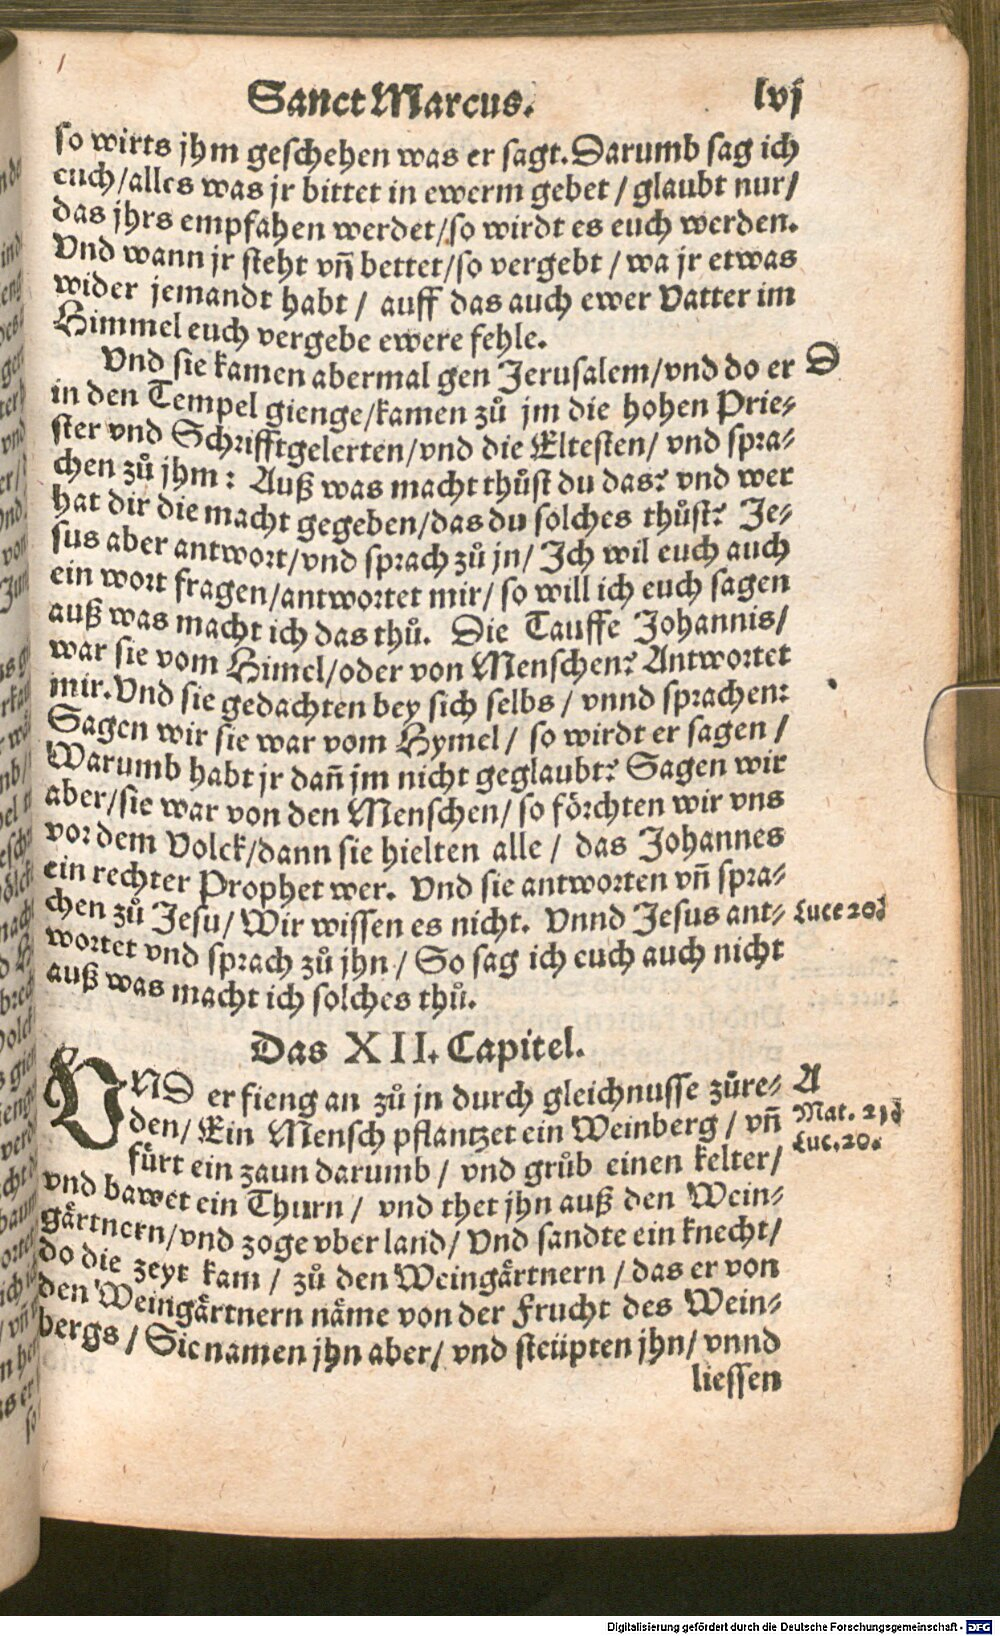 Sanct Marcus. lvj
so wirts jhm geschehen was er sagt. Darumb sag ich
euch/alles was jr bittet in ewerm gebet / glaubt nur/
das jhrs empfahen werdet/so wirdt es euch werden.
Vnd wann jr steht vñ bettet/so vergebt / wa jr etwas
wider jemandt habt / auff das auch ewer Vatter im
Himmel euch vergebe ewere fehle.
Vnd sie kamen abermal gen Jerusalem/vnd do er D
in den Tempel gienge/kamen zů jm die hohen Prie-
ster vnd Schrifftgelerten/vnd die Eltesten/ vnd spra-
chen zů jhm: Auß was macht thůst du das? vnd wer
hat dir die macht gegeben/das du solches thůst? Je-
sus aber antwort/vnd sprach zů jn/ Ich wil euch auch
ein wort fragen/antwortet mir/ so will ich euch sagen
auß was macht ich das thů. Die Tauffe Johannis/
war sie vom Himel/oder von Menschen? Antwortet
mir. Vnd sie gedachten bey sich selbs / vnnd sprachen:
Sagen wir sie war vom Hymel / so wirdt er sagen /
Warumb habt jr dañ jm nicht geglaubt? Sagen wir
aber/sie war von den Menschen/ so förchten wir vns
vor dem Volck/dann sie hielten alle / das Johannes
ein rechter Prophet wer. Vnd sie antworten vñ spra-
chen zů Jesu/ Wir wissen es nicht. Vnnd Jesus ant- Luce 20.
wortet vnd sprach zů jhn / So sag ich euch auch nicht
auß was macht ich solches thů.
Das XII. Capitel.
VND er fieng an zů jn durch gleichnusse zůre- A
den/ Ein Mensch pflantzet ein Weinberg / vñ Mat. 21
Luc. 20.
fürt ein zaun darumb / vnd grůb einen kelter/
vnd bawet ein Thurn / vnd thet jhn auß den Wein-
gärtnern/vnd zoge vber land/ Vnd sandte ein knecht/
do die zeyt kam / zů den Weingärtnern / das er von
den Weingärtnern näme von der Frucht des Wein-
bergs / Sie namen jhn aber/ vnd steüpten jhn/ vnnd
liessen
Digitalisierung gefördert durch die Deutsche Forschungsgemeinschaft - DFG